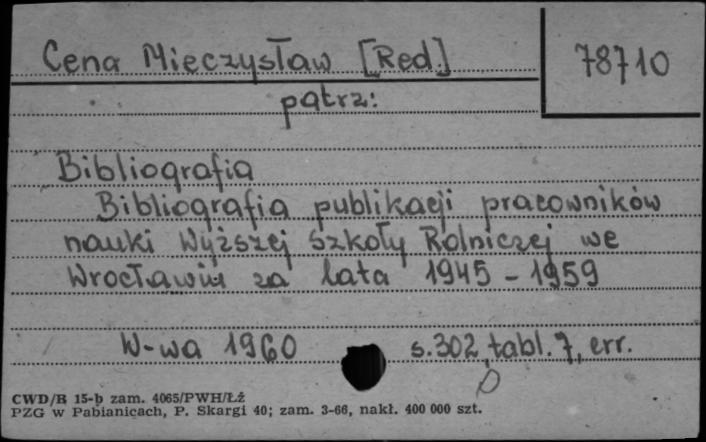 Cena Mieczysław [Red.]
78710
patrz:
Bibliografia
Bibliografia publikacji pracowników
nauki Wyższej Szkoły Rolniczej we
Wrocławiu za lata 1945 - 1959
W-wa 1960 s. 302, tabl. 7, err.
CWD/B 15-b zam. 4065/PWH/Łź
PZG w Pabianicach, P. Skargi 40; zam. 3-66, nakł. 400 000 szt.